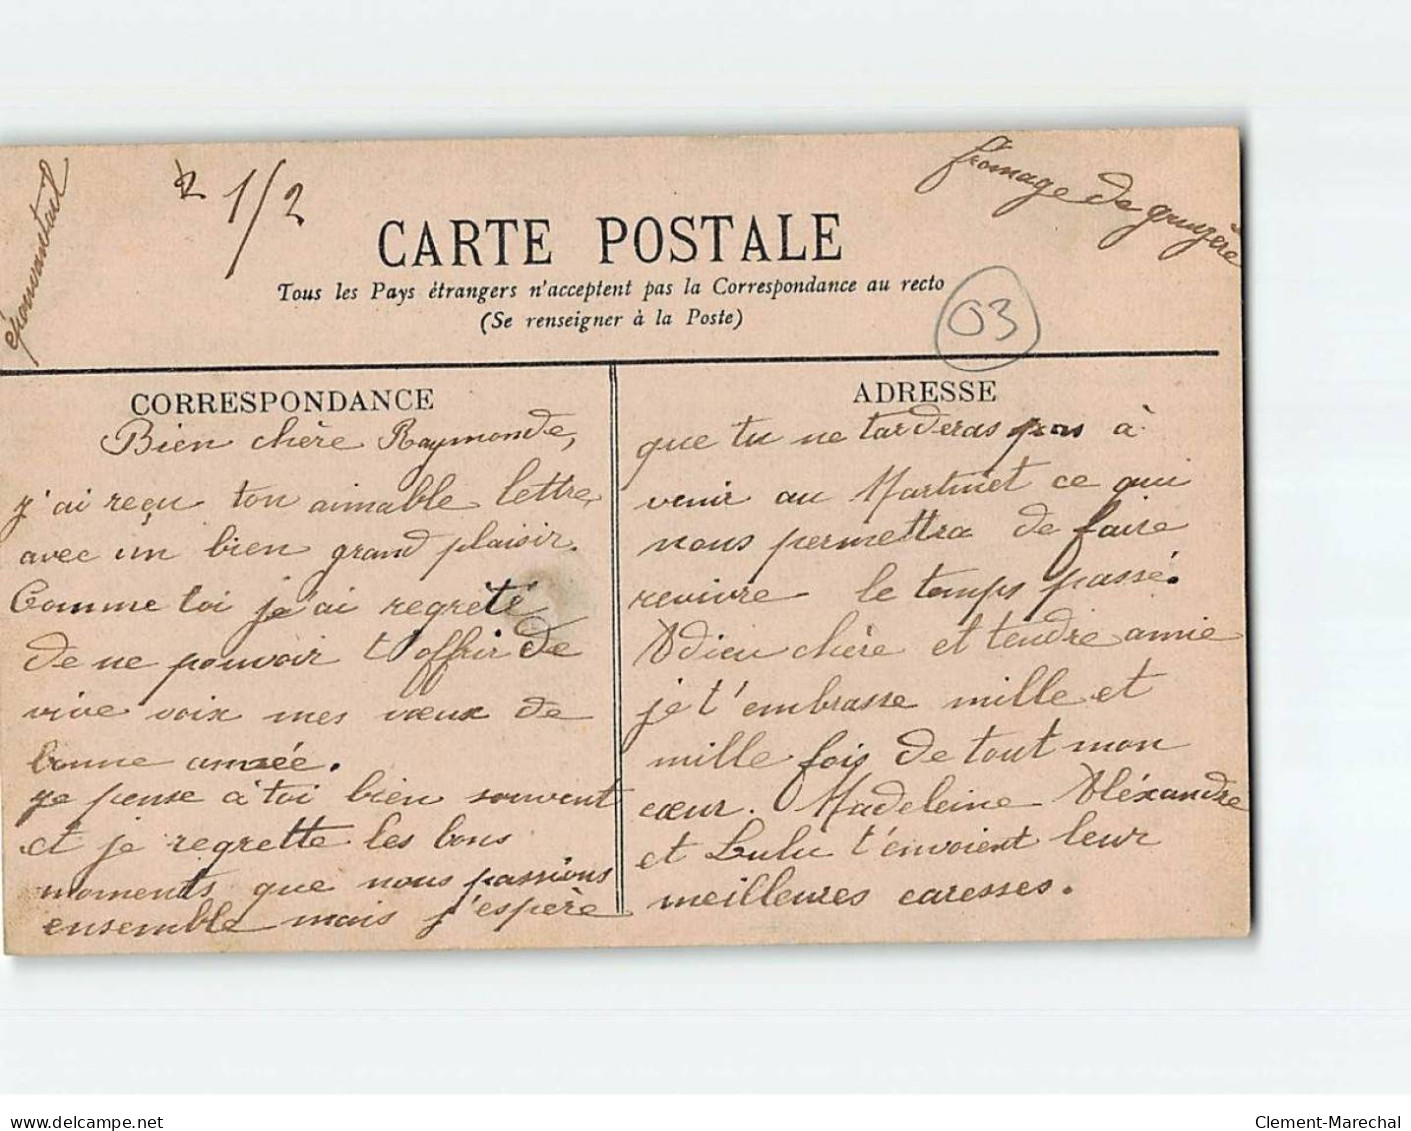 épouvantail
1/2
fromage de gruyère
CARTE POSTALE
Tous les Pays étrangers n'acceptent pas la Correspondance au recto
(Se renseigner à la Poste)
03
CORRESPONDANCE
Bien chère Raymonde,
j'ai reçu ton aimable lettre,
avec un bien grand plaisir.
Comme toi je'ai regreté
de ne pouvoir t'offrir de
vive voix mes vœux de
bonne année.
Je pense à toi bien souvent
et je regrette les bons
moments que nous passions
ensemble mais j'espère
ADRESSE
que tu ne tarderas pas à
venir au Martinet ce qui
nous permettra de faire
revivre le temps passé.
Adieu chère et tendre amie
je t'embrasse mille et
mille fois de tout mon
cœur. Madeleine Aléxandre
et Lulu t'envoient leur
meilleures caresses.
delcampe.net
Clement-Marechal